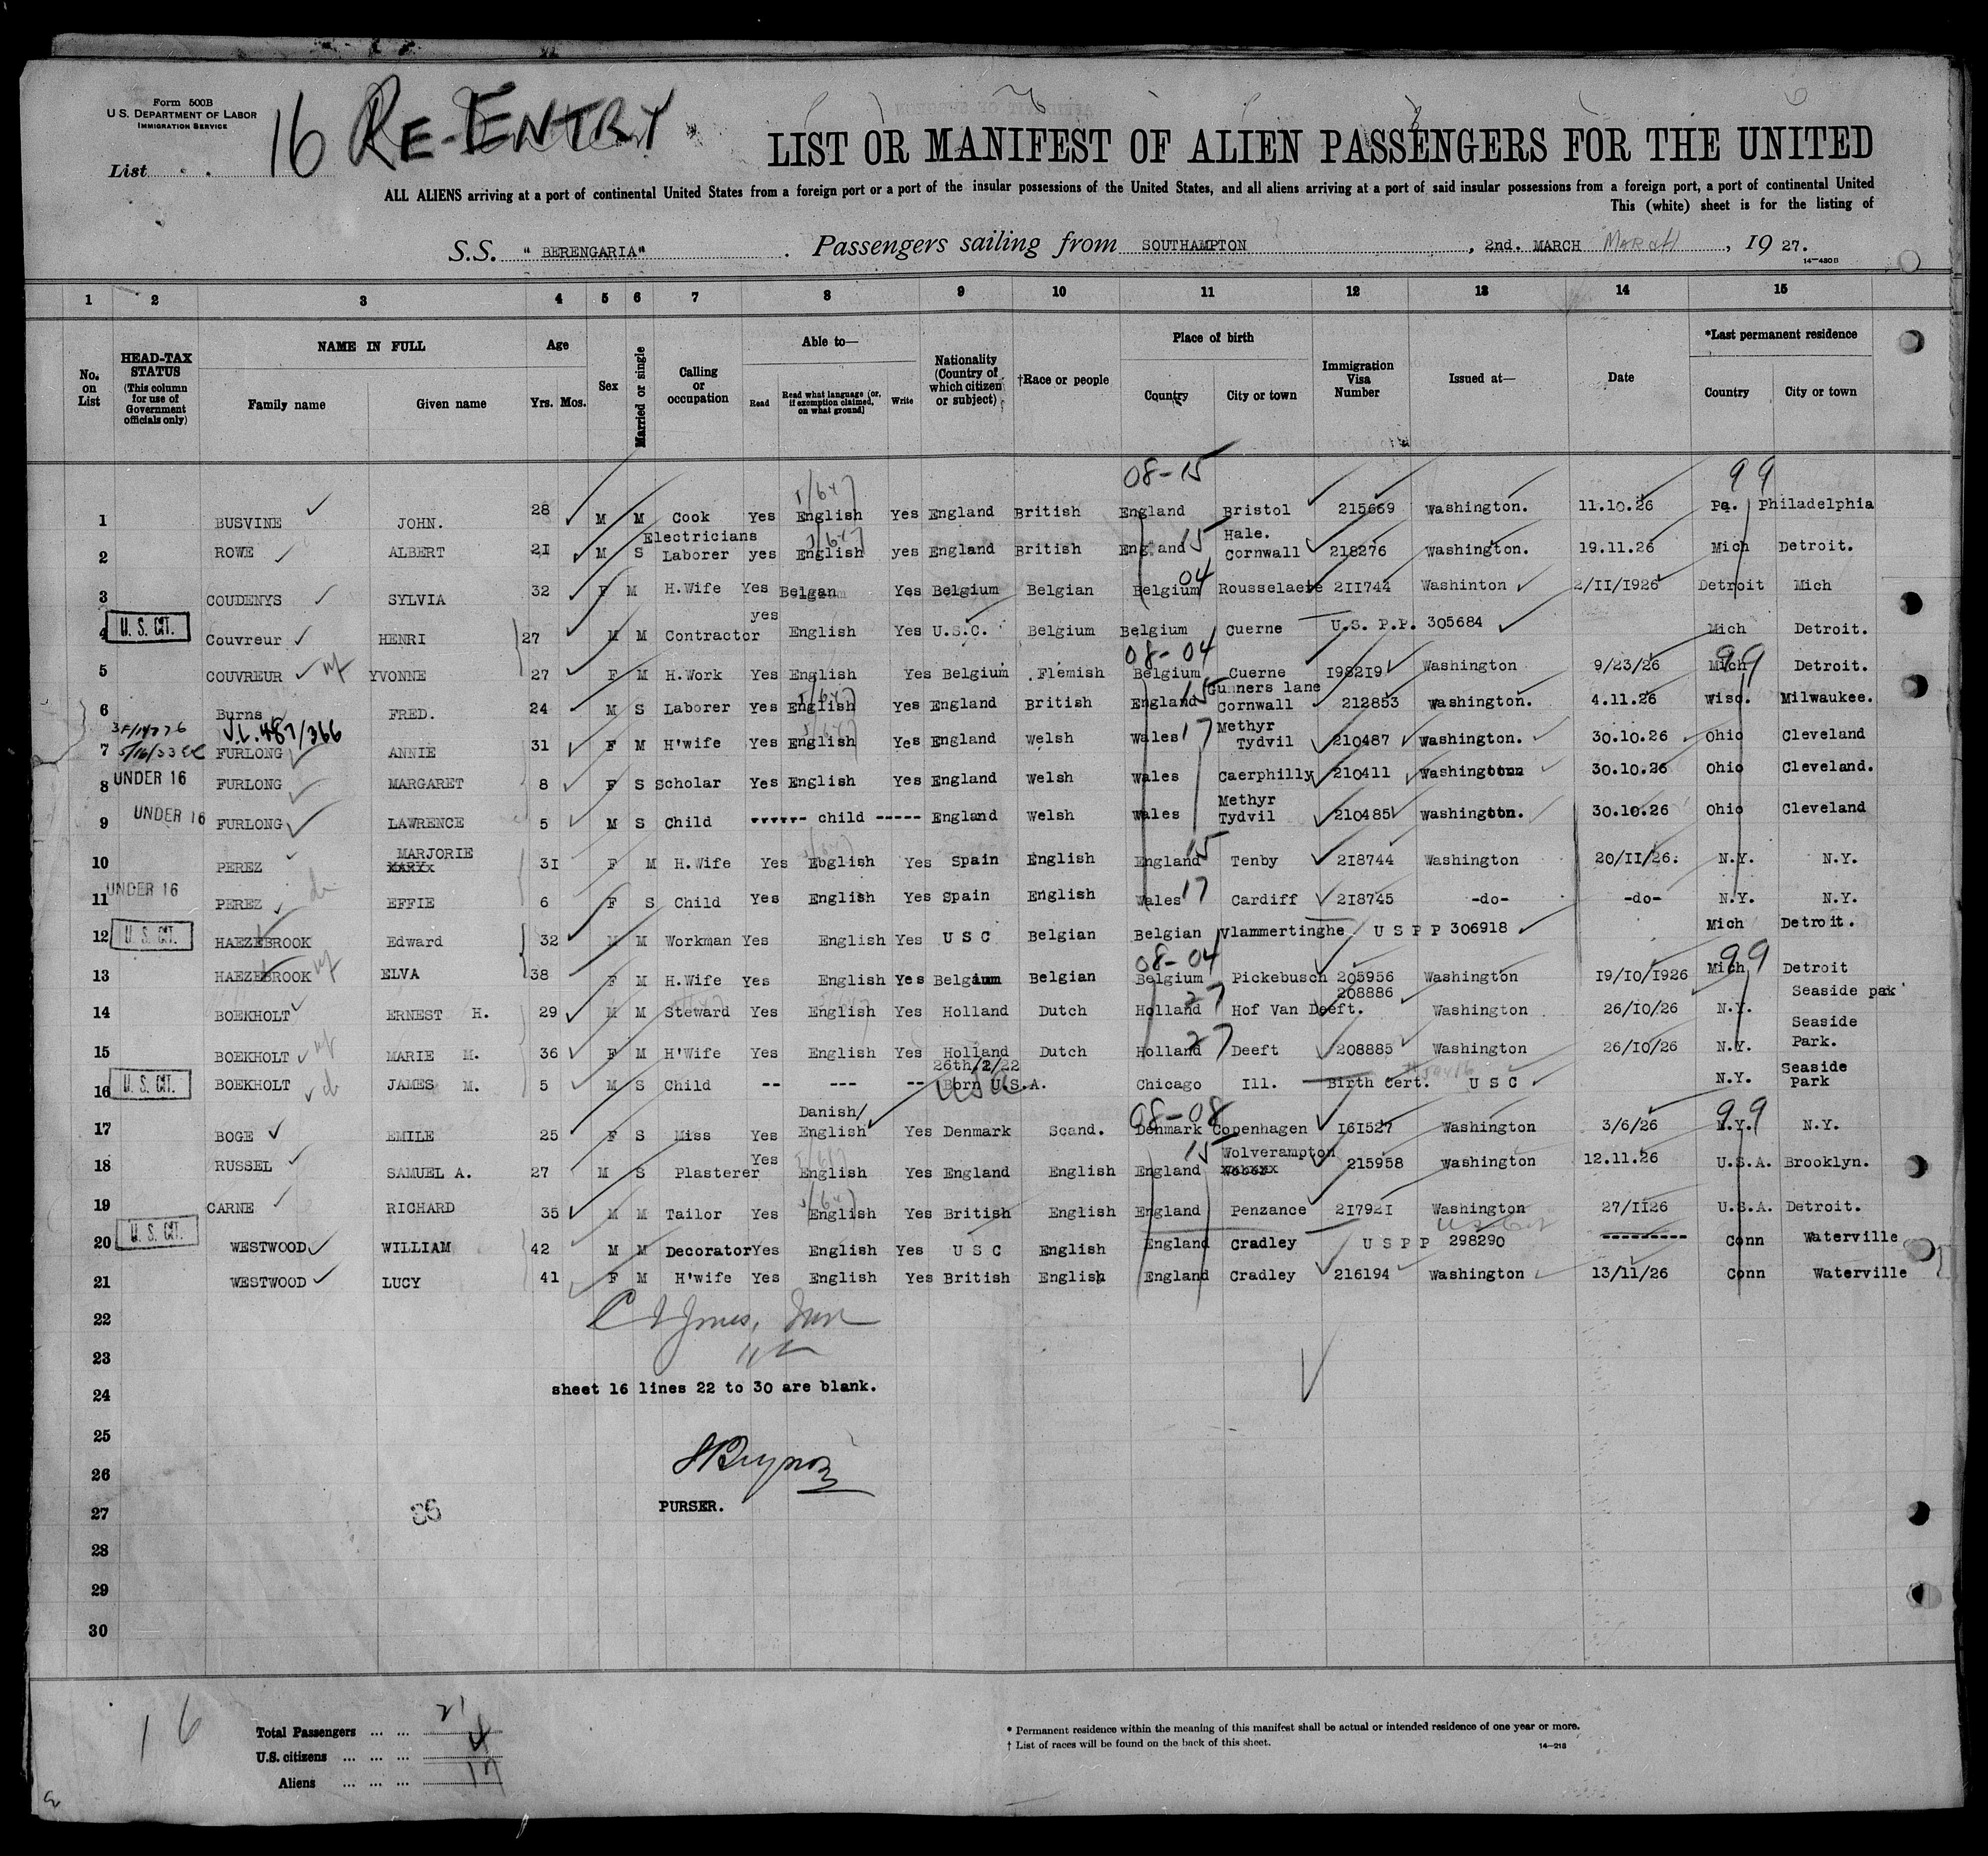 Form 500B
U.S. DEPARTMENT OF LABOR
IMMIGRATION SERVICE
List 16 RE-ENTRY
LIST OR MANIFEST OF ALIEN PASSENGERS FOR THE UNITED
ALL ALIENS arriving at a port of continental United States from a foreign port or a port of the insular possessions of the United States, and all aliens arriving at a port of said insular possessions from a foreign port, a port of continental United
This (white) sheet is for the listing of
S.S. "BERENGARIA". Passengers sailing from SOUTHAMPTON, 2nd. MARCH MARCH, 19 27.
14-480B
1 2 3 4 5 6 7 8 9 10 11 12 13 14 15
No. on List
HEAD-TAX STATUS (This column for use of Government officials only)
NAME IN FULL
Family name Given name
Age
Yrs. Mos.
Sex
Married or single
Calling or occupation
Able to—
Read
Read what language (or, if exemption claimed, on what ground)
Write
Nationality (Country of which citizen or subject)
†Race or people
Place of birth
Country City or town
Immigration Visa Number
Issued at—
Date
*Last permanent residence
Country City or town
08-15 99
1 BUSVINE JOHN. 28 M M Cook Yes English Yes England British England Bristol 215669 Washington. 11.10.26 Pa. Philadelphia
2 ROWE ALBERT 21 M S Electricians Laborer yes English yes England British England 15 Hale. Cornwall 218276 Washington. 19.11.26 Mich Detroit.
3 COUDENYS SYLVIA 32 F M H.Wife Yes Belgan Yes Belgium Belgian Belgium 04 Rousselaere 211744 Washinton 2/11/1926 Detroit Mich
4 U.S. CIT. Couvreur HENRI 27 M M Contractor yes English Yes U.S.C. Belgium Belgium Cuerne U.S. P.P. 305684 Mich Detroit.
08-04 99
5 COUVREUR wf YVONNE 27 F M H.Work Yes English Yes Belgium Flemish Belgium Cuerne 198219 Washington 9/23/26 Mich Detroit.
6 Burns FRED. 24 M S Laborer Yes English Yes England British England 15 Gunners lane Cornwall 212853 Washington. 4.11.26 Wisc. Milwaukee.
V.L. 487/366
7 5/16/33 FURLONG ANNIE 31 F M H'wife Yes English Yes England Welsh Wales 17 Methyr Tydvil 210487 Washington. 30.10.26 Ohio Cleveland
8 UNDER 16 FURLONG MARGARET 8 F S Scholar Yes English Yes England Welsh Wales Caerphilly 210411 Washington 30.10.26 Ohio Cleveland.
9 UNDER 16 FURLONG LAWRENCE 5 M S Child ------ child ----- England Welsh Wales Methyr Tydvil 210485 Washington. 30.10.26 Ohio Cleveland
10 PEREZ MARJORIE MARYx 31 F M H.Wife Yes Ebglish Yes Spain English England 15 Tenby 218744 Washington 20/11/26. N.Y. N.Y.
11 UNDER 16 PEREZ EFFIE 6 F S Child Yes English Yes Spain English Wales 17 Cardiff 218745 -do- -do- N.Y. N.Y.
12 U.S. CIT. HAEZEBROOK Edward 32 M M Workman Yes English Yes U S C Belgian Belgian Vlammertinghe U S P P 306918 Mich Detroit.
08-04 99
13 HAEZEBROOK wf ELVA 38 F M H.Wife Yes English Yes Belgium Belgian Belgium Pickebusch 205956 Washington 19/10/1926 Mich Detroit
14 BOEKHOLT ERNEST H. 29 M M Steward Yes English Yes Holland Dutch Holland 27 Hof Van Deeft. 208886 Washington 26/10/26 N.Y. Seaside pak
15 BOEKHOLT wf MARIE M. 36 F M H'Wife Yes English Yes Holland Dutch Holland 27 Deeft 208885 Washington 26/10/26 N.Y. Seaside Park.
16 U.S. CIT. BOEKHOLT JAMES M. 5 M S Child -- --- -- 26th/2/22 Born U.S.A. Chicago Ill. Birth Cert. U S C N.Y. Seaside Park
08-08 99
17 BOGE EMILE 25 F S Miss Yes Danish/ English Yes Denmark Scand. Denmark Copenhagen 161527 Washington 3/6/26 N.Y. N.Y.
18 RUSSEL SAMUEL A. 27 M S Plasterer Yes English Yes England English England 15 Wolverampton 215958 Washington 12.11.26 U.S.A. Brooklyn.
19 CARNE RICHARD 35 M M Tailor Yes English Yes British English England Penzance 217921 Washington 27/1126 U.S.A. Detroit.
20 U.S. CIT. WESTWOOD WILLIAM 42 M M Decorator Yes English Yes U S C English England Cradley U S P P 298290 --------- Conn Waterville
21 WESTWOOD LUCY 41 F M H'wife Yes English Yes British English England Cradley 216194 Washington 13/11/26 Conn Waterville
22
23
24 sheet 16 lines 22 to 30 are blank.
25
26
27 PURSER.
28
29
30
16
Total Passengers ... ... 21
U.S. citizens ... ... ... 4
Aliens ... ... ... 17
* Permanent residence within the meaning of this manifest shall be actual or intended residence of one year or more.
† List of races will be found on the back of this sheet.
14-218